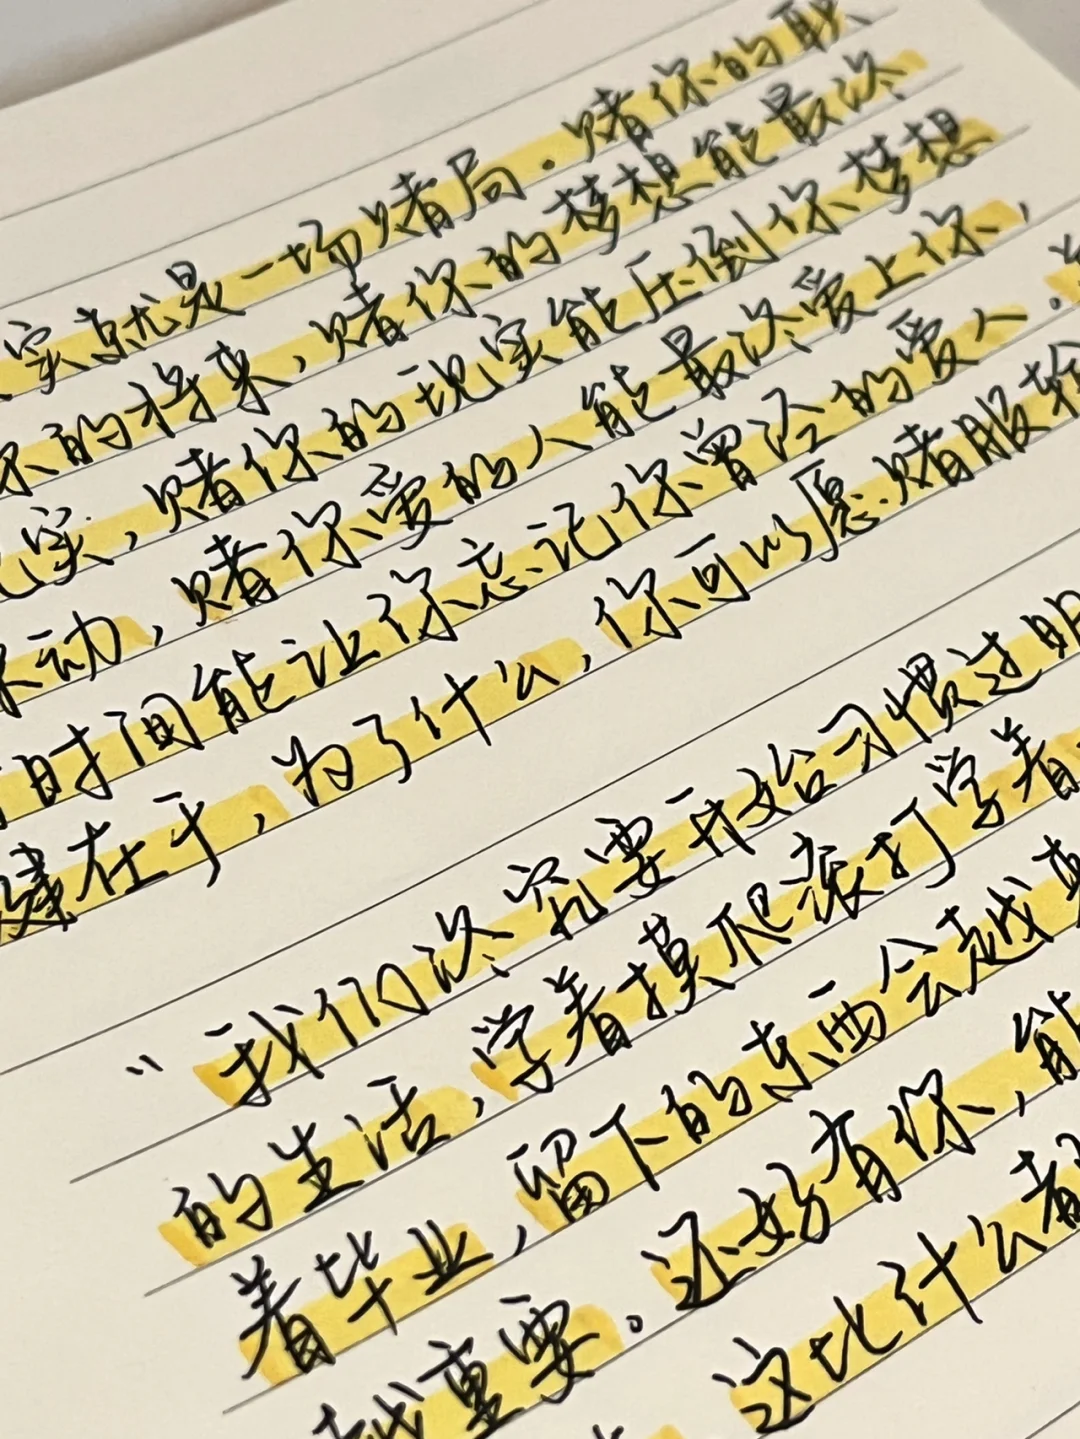 实就是一场赌局.赌你的职
你的将来,赌你的梦想能最终
现实,赌你的现实能压倒你梦想
冲动,赌你爱的人能最终爱上你,
时间能让你忘记你曾经的爱人.
键在于,为了什么,你可以愿赌服输
“我们终究要开始习惯过
的生活,学着摸爬滚打学着
着毕业,留下的东西会越来
越重要。还好有你,能
这比什么都